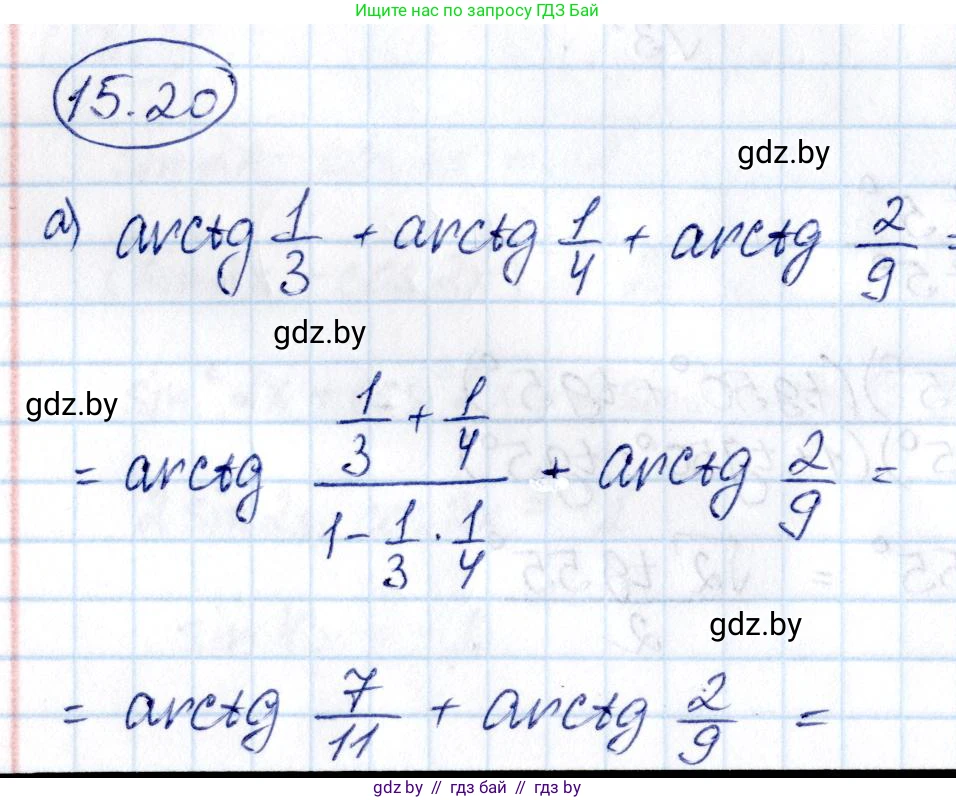 Ищите нас по запросу ГДЗ Бай
15.20
gdz.by
а) arctg 1/3 + arctg 1/4 + arctg 2/9 =
gdz.by
gdz.by
= arctg (1/3 + 1/4)/(1 - 1/3 · 1/4) + arctg 2/9 =
gdz.by
= arctg 7/11 + arctg 2/9 =
gdz.by // гдз бай // gdz.by